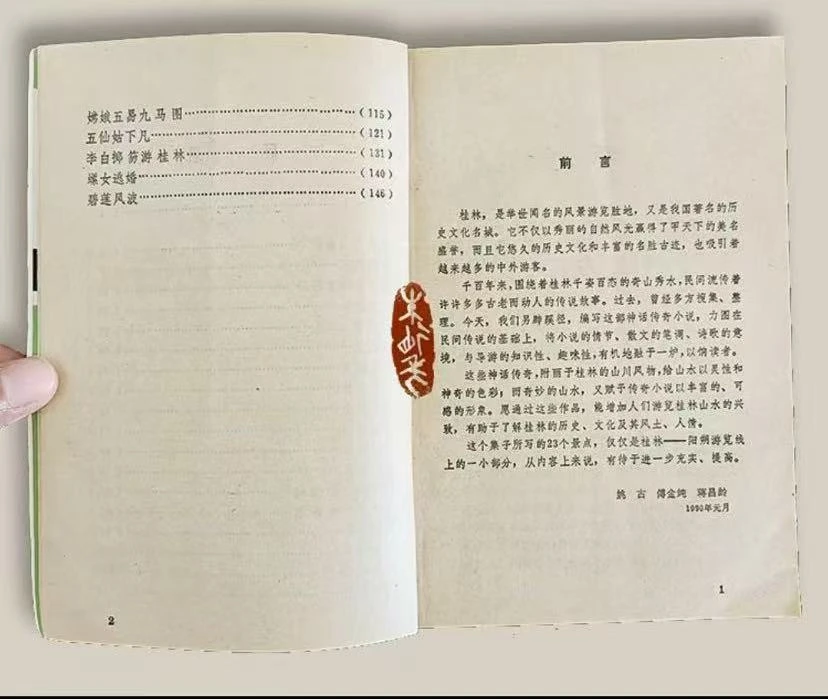 嫦娥五易九马图……………………………………(115)
五仙姑下凡…………………………………………(121)
李白挪笏游桂林……………………………………(131)
螺女逃婚……………………………………………(140)
碧莲风波……………………………………………(146)
2
前 言
桂林，是举世闻名的风景游览胜地，又是我国著名的历
史文化名城。它不仅以秀丽的自然风光赢得了甲天下的美名
盛誉，而且它悠久的历史文化和丰富的名胜古迹，也吸引着
越来越多的中外游客。
千百年来，围绕着桂林千姿百态的奇山秀水，民间流传着
许许多多古老而动人的传说故事。过去，曾经多方搜集、整
理。今天，我们另辟蹊径，编写这部神话传奇小说，力图在
民间传说的基础上，将小说的情节、散文的笔调、诗歌的意
境，与导游的知识性、趣味性，有机地融于一炉，以飨读者。
这些神话传奇，附丽于桂林的山川风物，给山水以灵性和
神奇的色彩；而奇妙的山水，又赋于传奇小说以丰富的、可
感的形象。愿通过这些作品，能增加人们游览桂林山水的兴
致，有助于了解桂林的历史、文化及其风土、人情。
这个集子所写的23个景点，仅仅是桂林——阳朔游览线
上的一小部分，从内容上来说，有待于进一步充实、提高。
姚 古 傅金纯 蒋昌龄
1990年元月
1